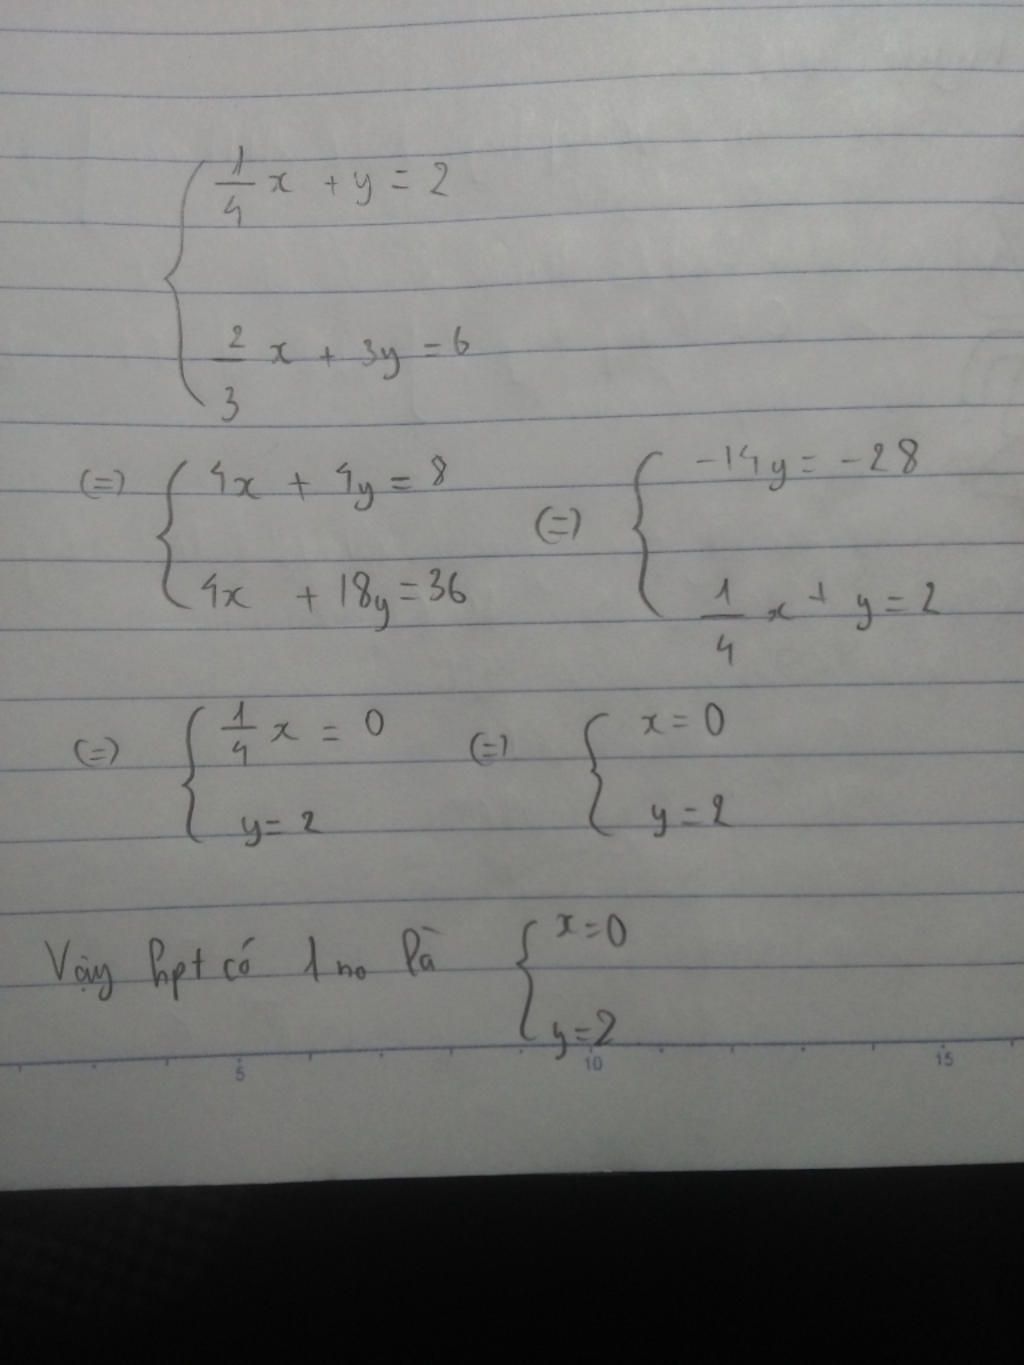 1/4 x + y = 2
2/3 x + 3y = 6
(=) { 4x + 4y = 8
4x + 18y = 36
(=) { -14y = -28
1/4 x + y = 2
(=) { 1/4 x = 0
y = 2
(=) { x = 0
y = 2
Vậy hpt có 1 no là { x = 0
y = 2
5 10 15